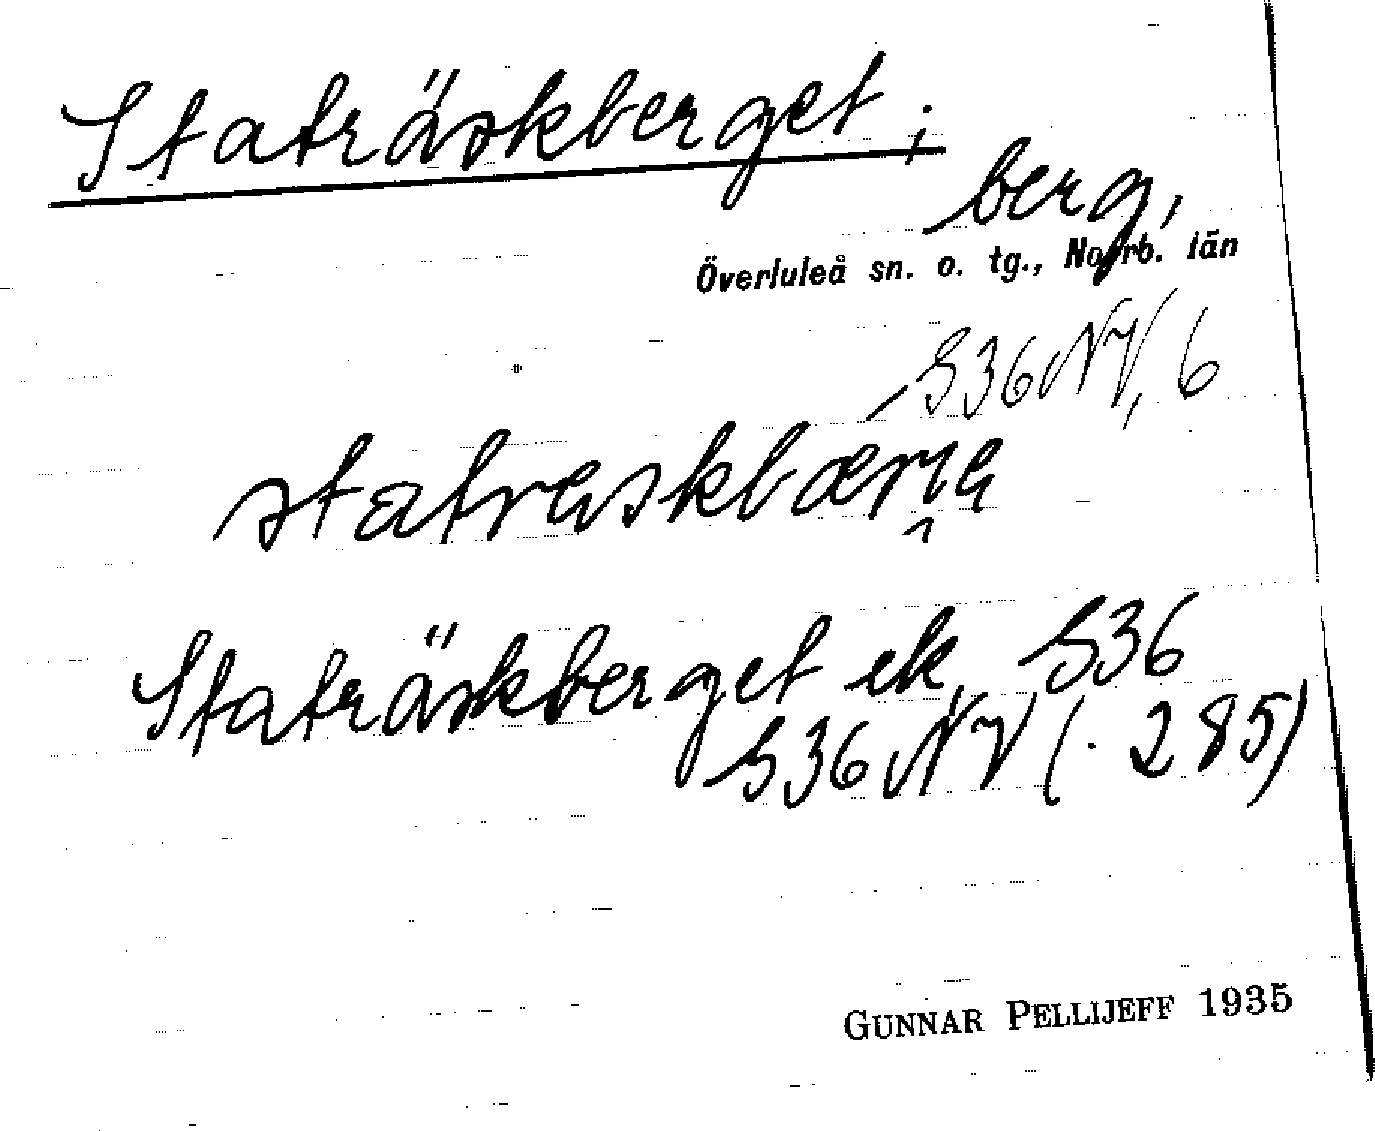 Staträskberget;
berg,
Överluleå sn. o. tg., Norrb. län
S36NV, 6
Staträskberget ek S36
S36NV (. 285)
GUNNAR PELLIJEFF 1935